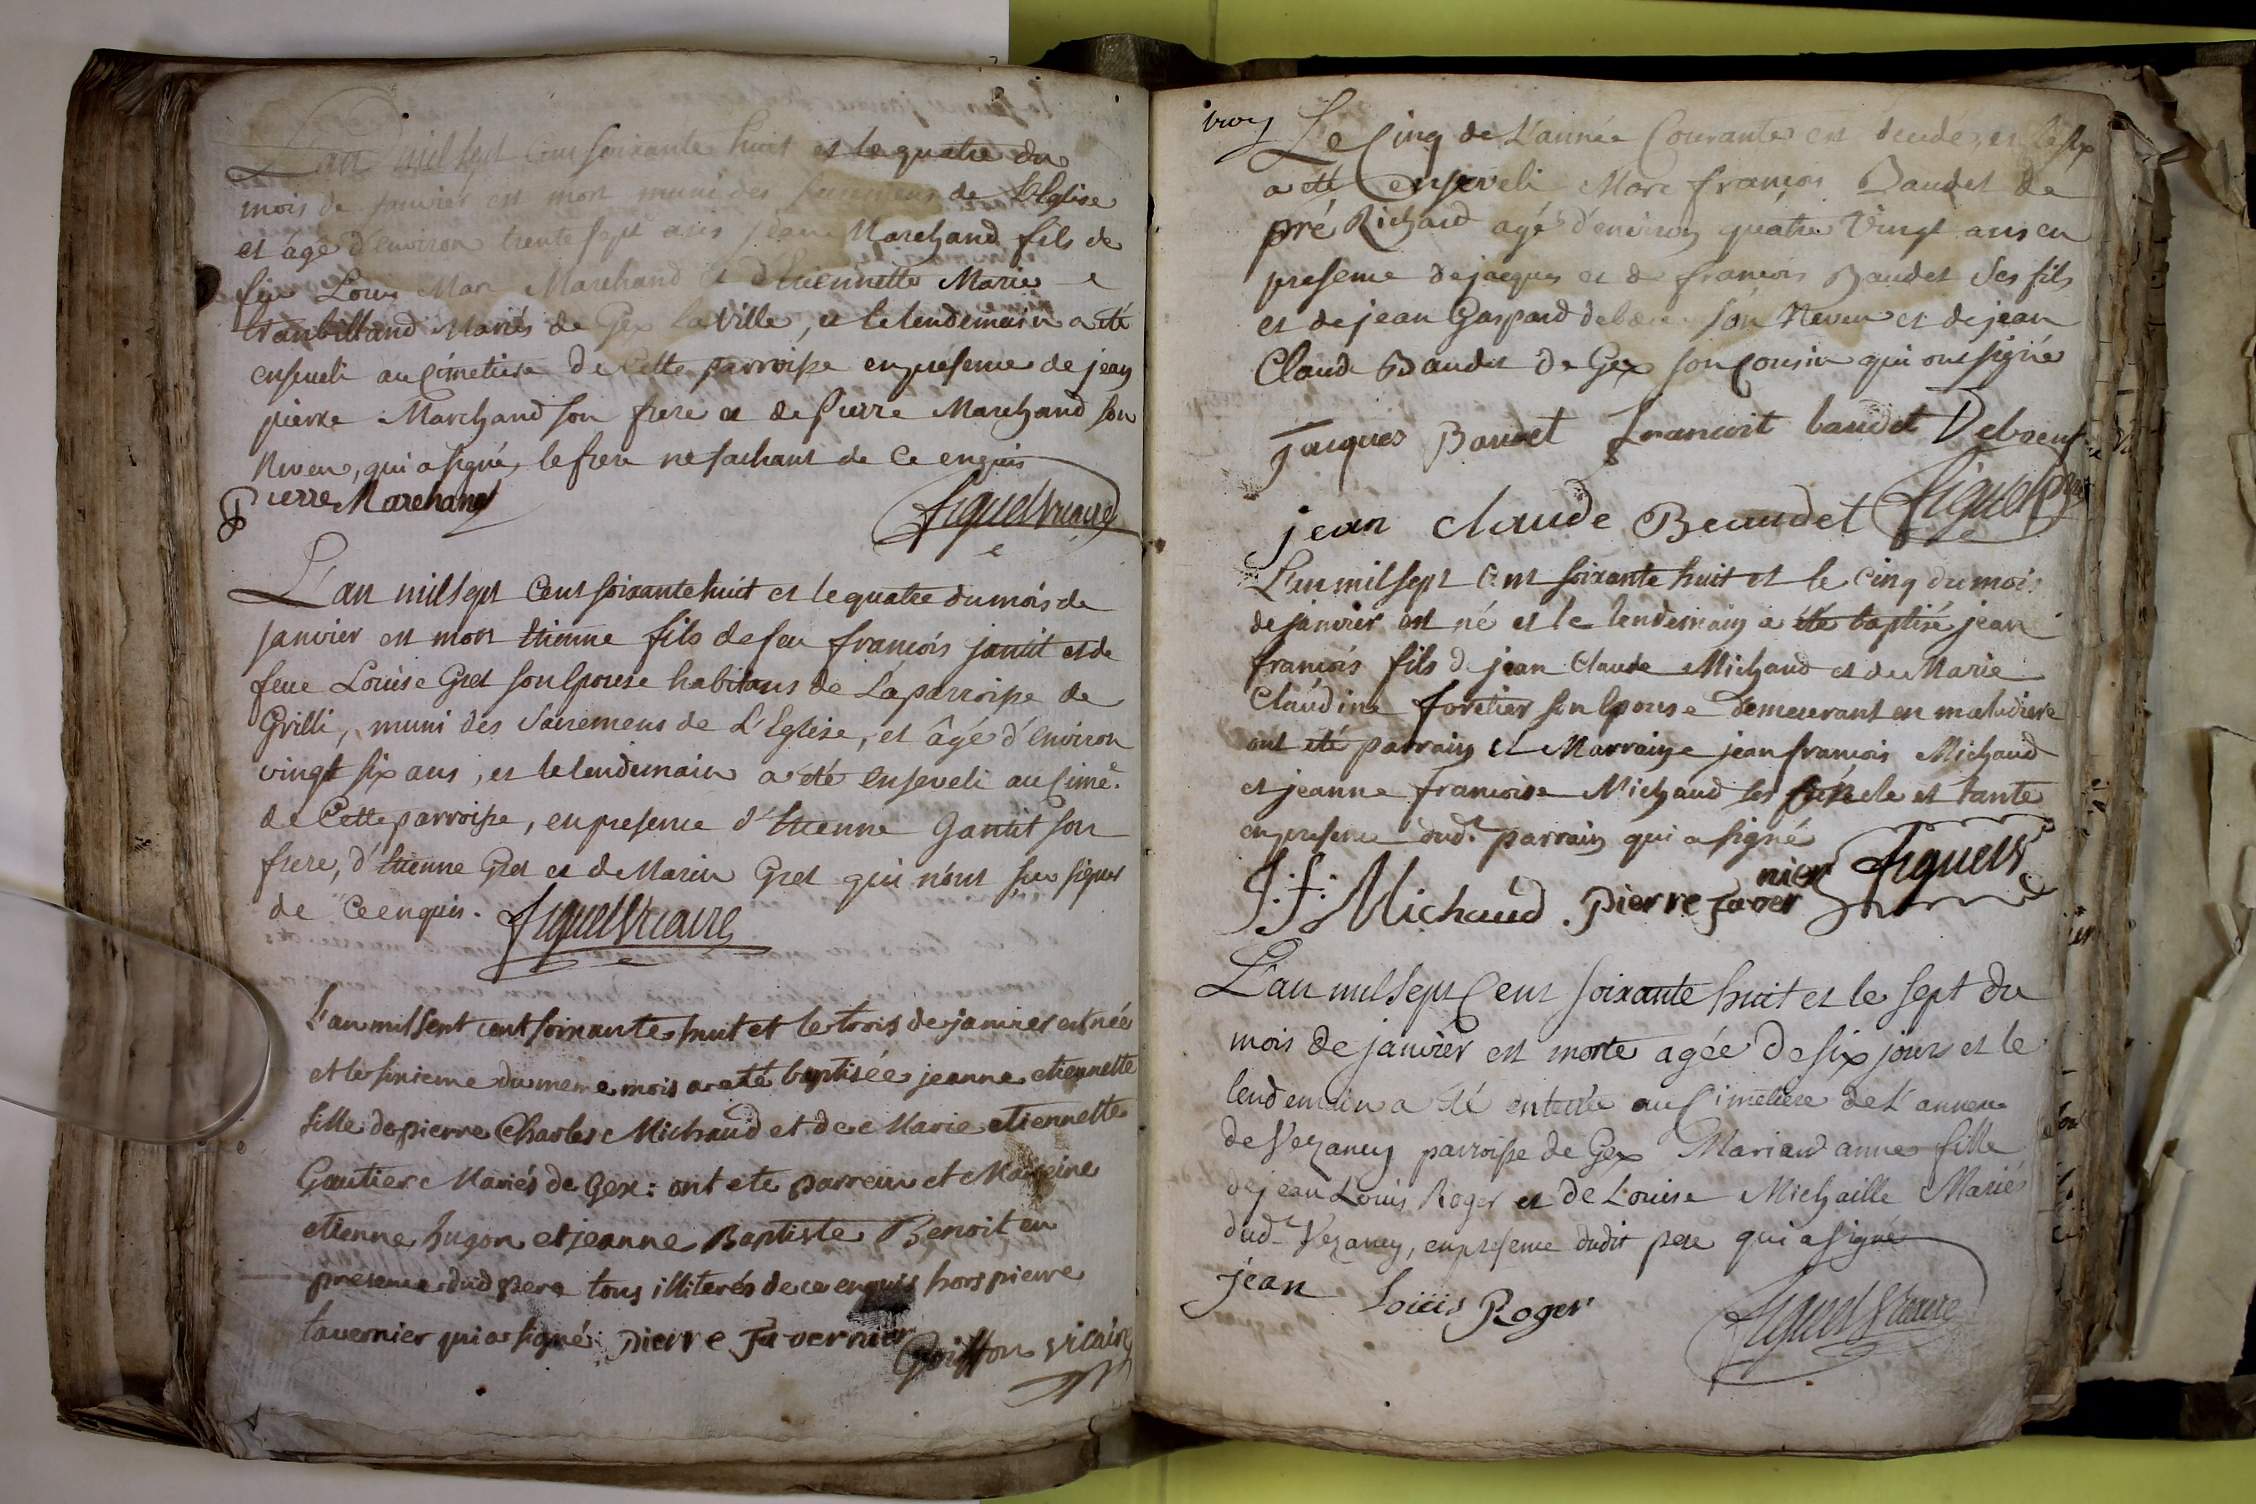 L'an mil sept cent soixante huit et le quatre du
mois de janvier est mort muni des sacremens de L'Eglise
et âgé d'environ trente sept ans jean Marchand fils de
feu Louis Marc Marchand et d'Etiennette Marie
Mariés de Gex la ville, et le lendemain a été
enseveli au Cimetiere de Cette parroisse en presence de jean
pierre Marchand son frere et de pierre Marchand son
Neveu, qui a signé, le frere ne sachant de ce enquis
Pierre Marchand Figuet vicaire
L'an mil sept Cent soixante huit et le quatre du mois de
janvier est mort Etienne fils de feu francois jantit et de
feue Louise Gret son Epouse habitans de La parroisse de
Grilli, muni des Sacremens de L'Eglise, et âgé d'environ
vingt six ans, et le lendemain a été Enseveli au Cime.e
de Cette parroisse, en presence d'Etienne Gantit son
frere, d'Etienne Gret et de Marin Gret qui n'ont su signer
de Ce enquis. Figuet Vicaire
L'an mil sent cent soixante huit et le trois de janvier est née
et le sixieme du meme mois a eté baptisée jeanne etiennette
fille de pierre Charles Michaud et de Marie etiennette
Gautier Mariés de Gex: ont ete parrein et Marreine
etienne hugon et jeanne Baptiste Benoit en
presence dud pere tous illiterés de ce enquis hors pierre
tavernier qui a signé: pierre Tavernier Goiffon vicaire
Le Cinq de L'année Courante est decedé, et le six
a été Enseveli Marc francois Baudet de
pré Richard agé d'environ quatre Vingt ans en
presence de jacques et de francois Baudet Ses fils
et de jean Gaspard son Neveu et de jean
Claude Baudet de Gex son Cousin qui ont signé
Jacques Baudet francoit baudet Deboeuf
jean claude Beaudet Figuet
L'an mil sept Cent soixante huit et le cinq du mois
de janvier est né et le lendemain a été baptisé jean
francois fils de jean Claude Michaud et de Marie
Claudine foretier son Epouse demeurant en maladiere
ont été parrain et Marraine jean francois Michaud
et jeanne francoise Michaud ses oncle et tante
en presence dud.t parrain qui a signé
J. f. Michaud. pierre Taver
nier Figuet V.
L'an mil Sept Cent soixante huit et le sept du
mois de janvier est morte agée de six jours et le
lendemain a été enterrée au Cimetiere de L'annexe
de Vezancy parroisse de Gex Mariand anne fille
de jean Louis Roger et de Louise Michaille Mariés
dud.t Vezancy, en presence dudit pere qui a signé
jean Loüis Roger Figuet Vicaire